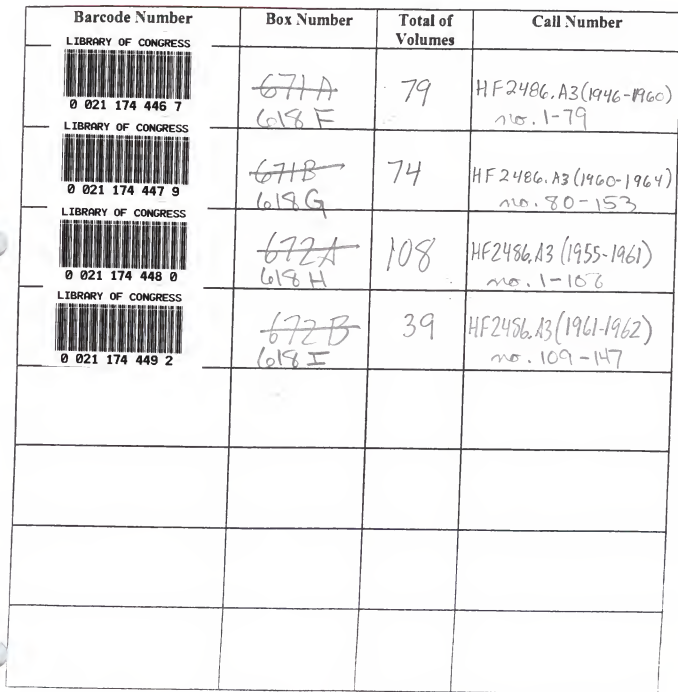 Barcode Number Box Number Total of Volumes Call Number
LIBRARY OF CONGRESS
0 021 174 446 7
671A
618 F
79
HF2486.A3(1946-1960)
no. 1-79
LIBRARY OF CONGRESS
0 021 174 447 9
671B
618 G
74
HF2486.A3(1960-1964)
no. 80-153
LIBRARY OF CONGRESS
0 021 174 448 0
672A
618 H
108
HF2486.A3 (1955-1961)
no. 1-108
LIBRARY OF CONGRESS
0 021 174 449 2
672B
618 I
39
HF2486.A3(1961-1962)
no. 109-147